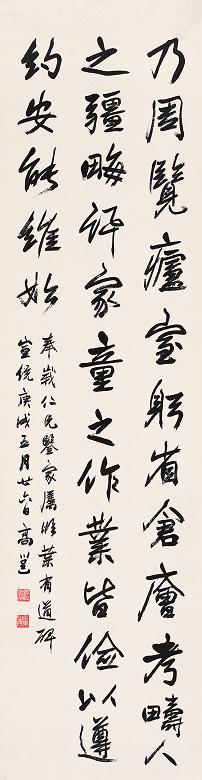 乃周覽廬室躬省倉廥考疇人
之疆畮評家童之作業皆儉以遵
約安能維始
奉 公兄鑒家屬 業有道碑
宣統庚戌五月廿六日高邕